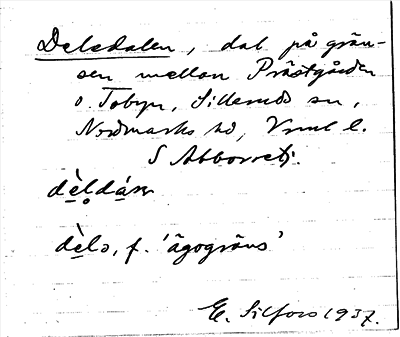 Deledalen, dal på grän-
sen mellan Prästgården
o. Tobyn, Silleruds sn,
Nordmarks hd, Vrml l.
S Abborretj.
dèldán
dèlə, f. 'ägogräns'
E. Silfors 1937.